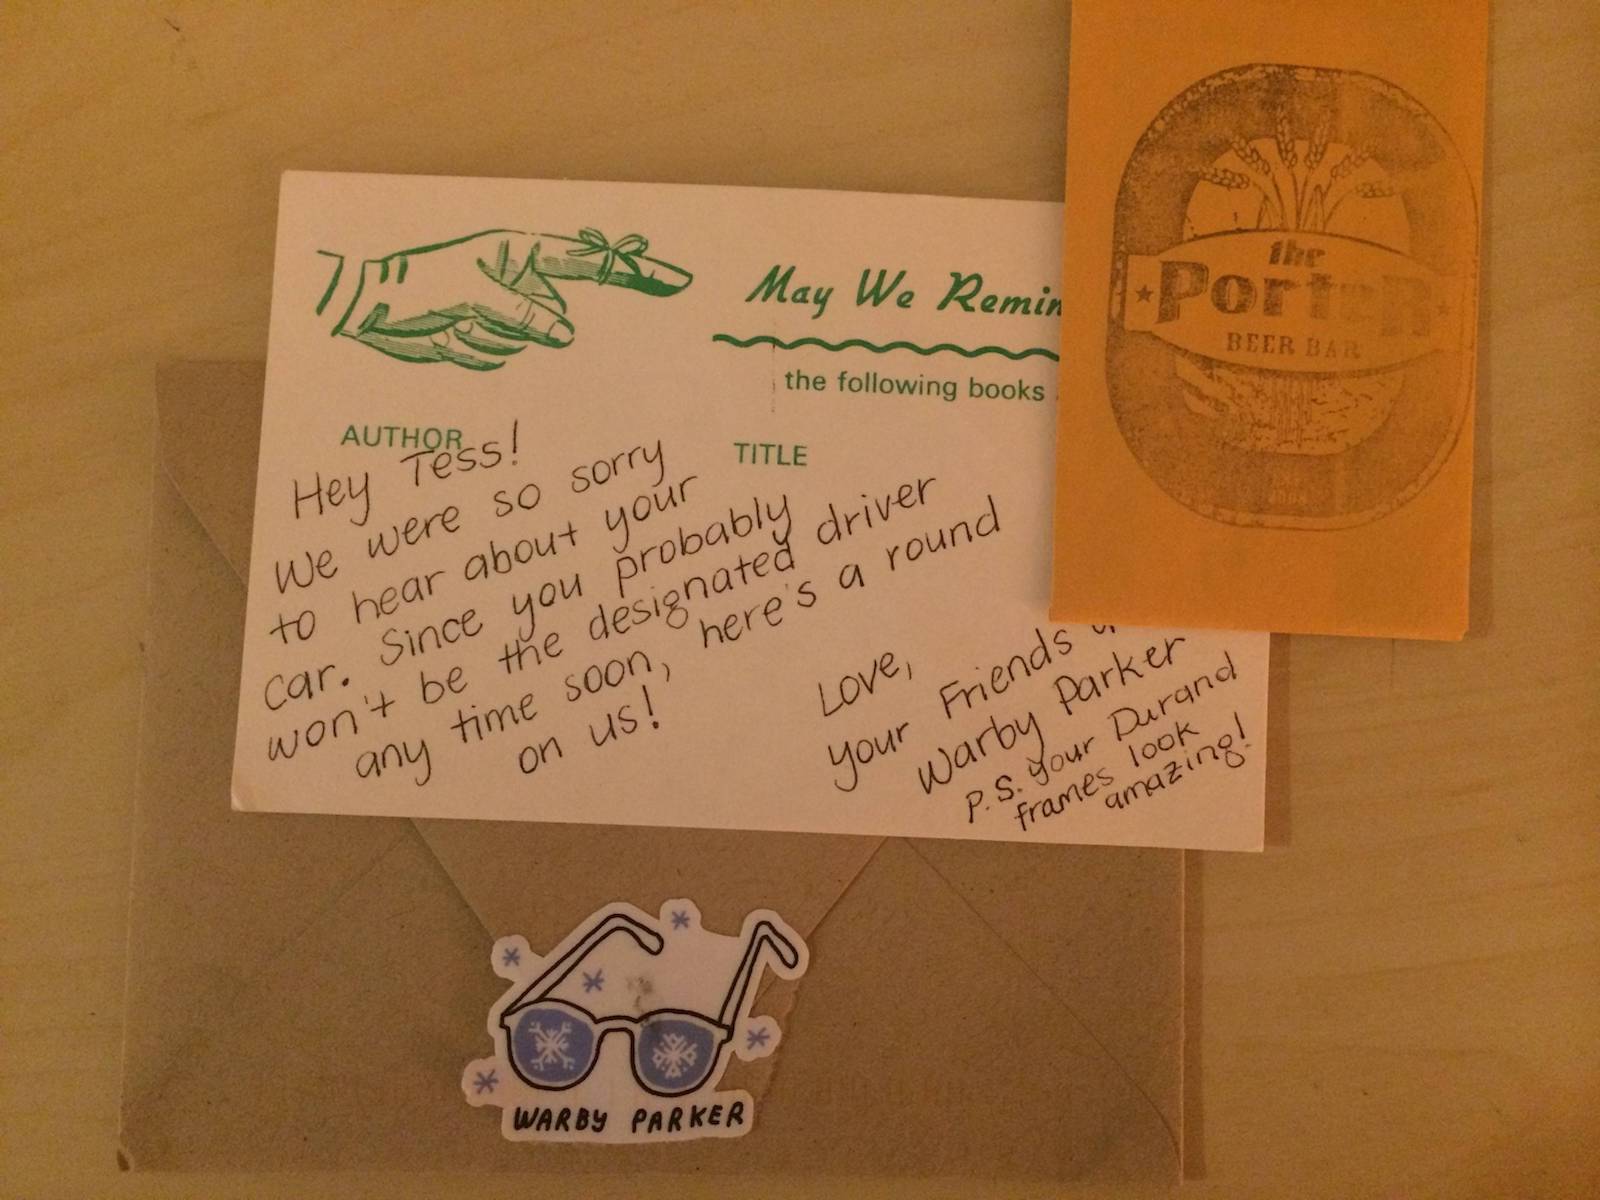 May We Remin
the following books
AUTHOR
TITLE
Hey Tess!
We were so sorry
to hear about your
car. Since you probably
won't be the designated driver
any time soon, here's a round
on us!
Love,
your Friends
Warby Parker
P.S. your Durand
frames look
amazing!
the
Porter
BEER BAR
WARBY PARKER